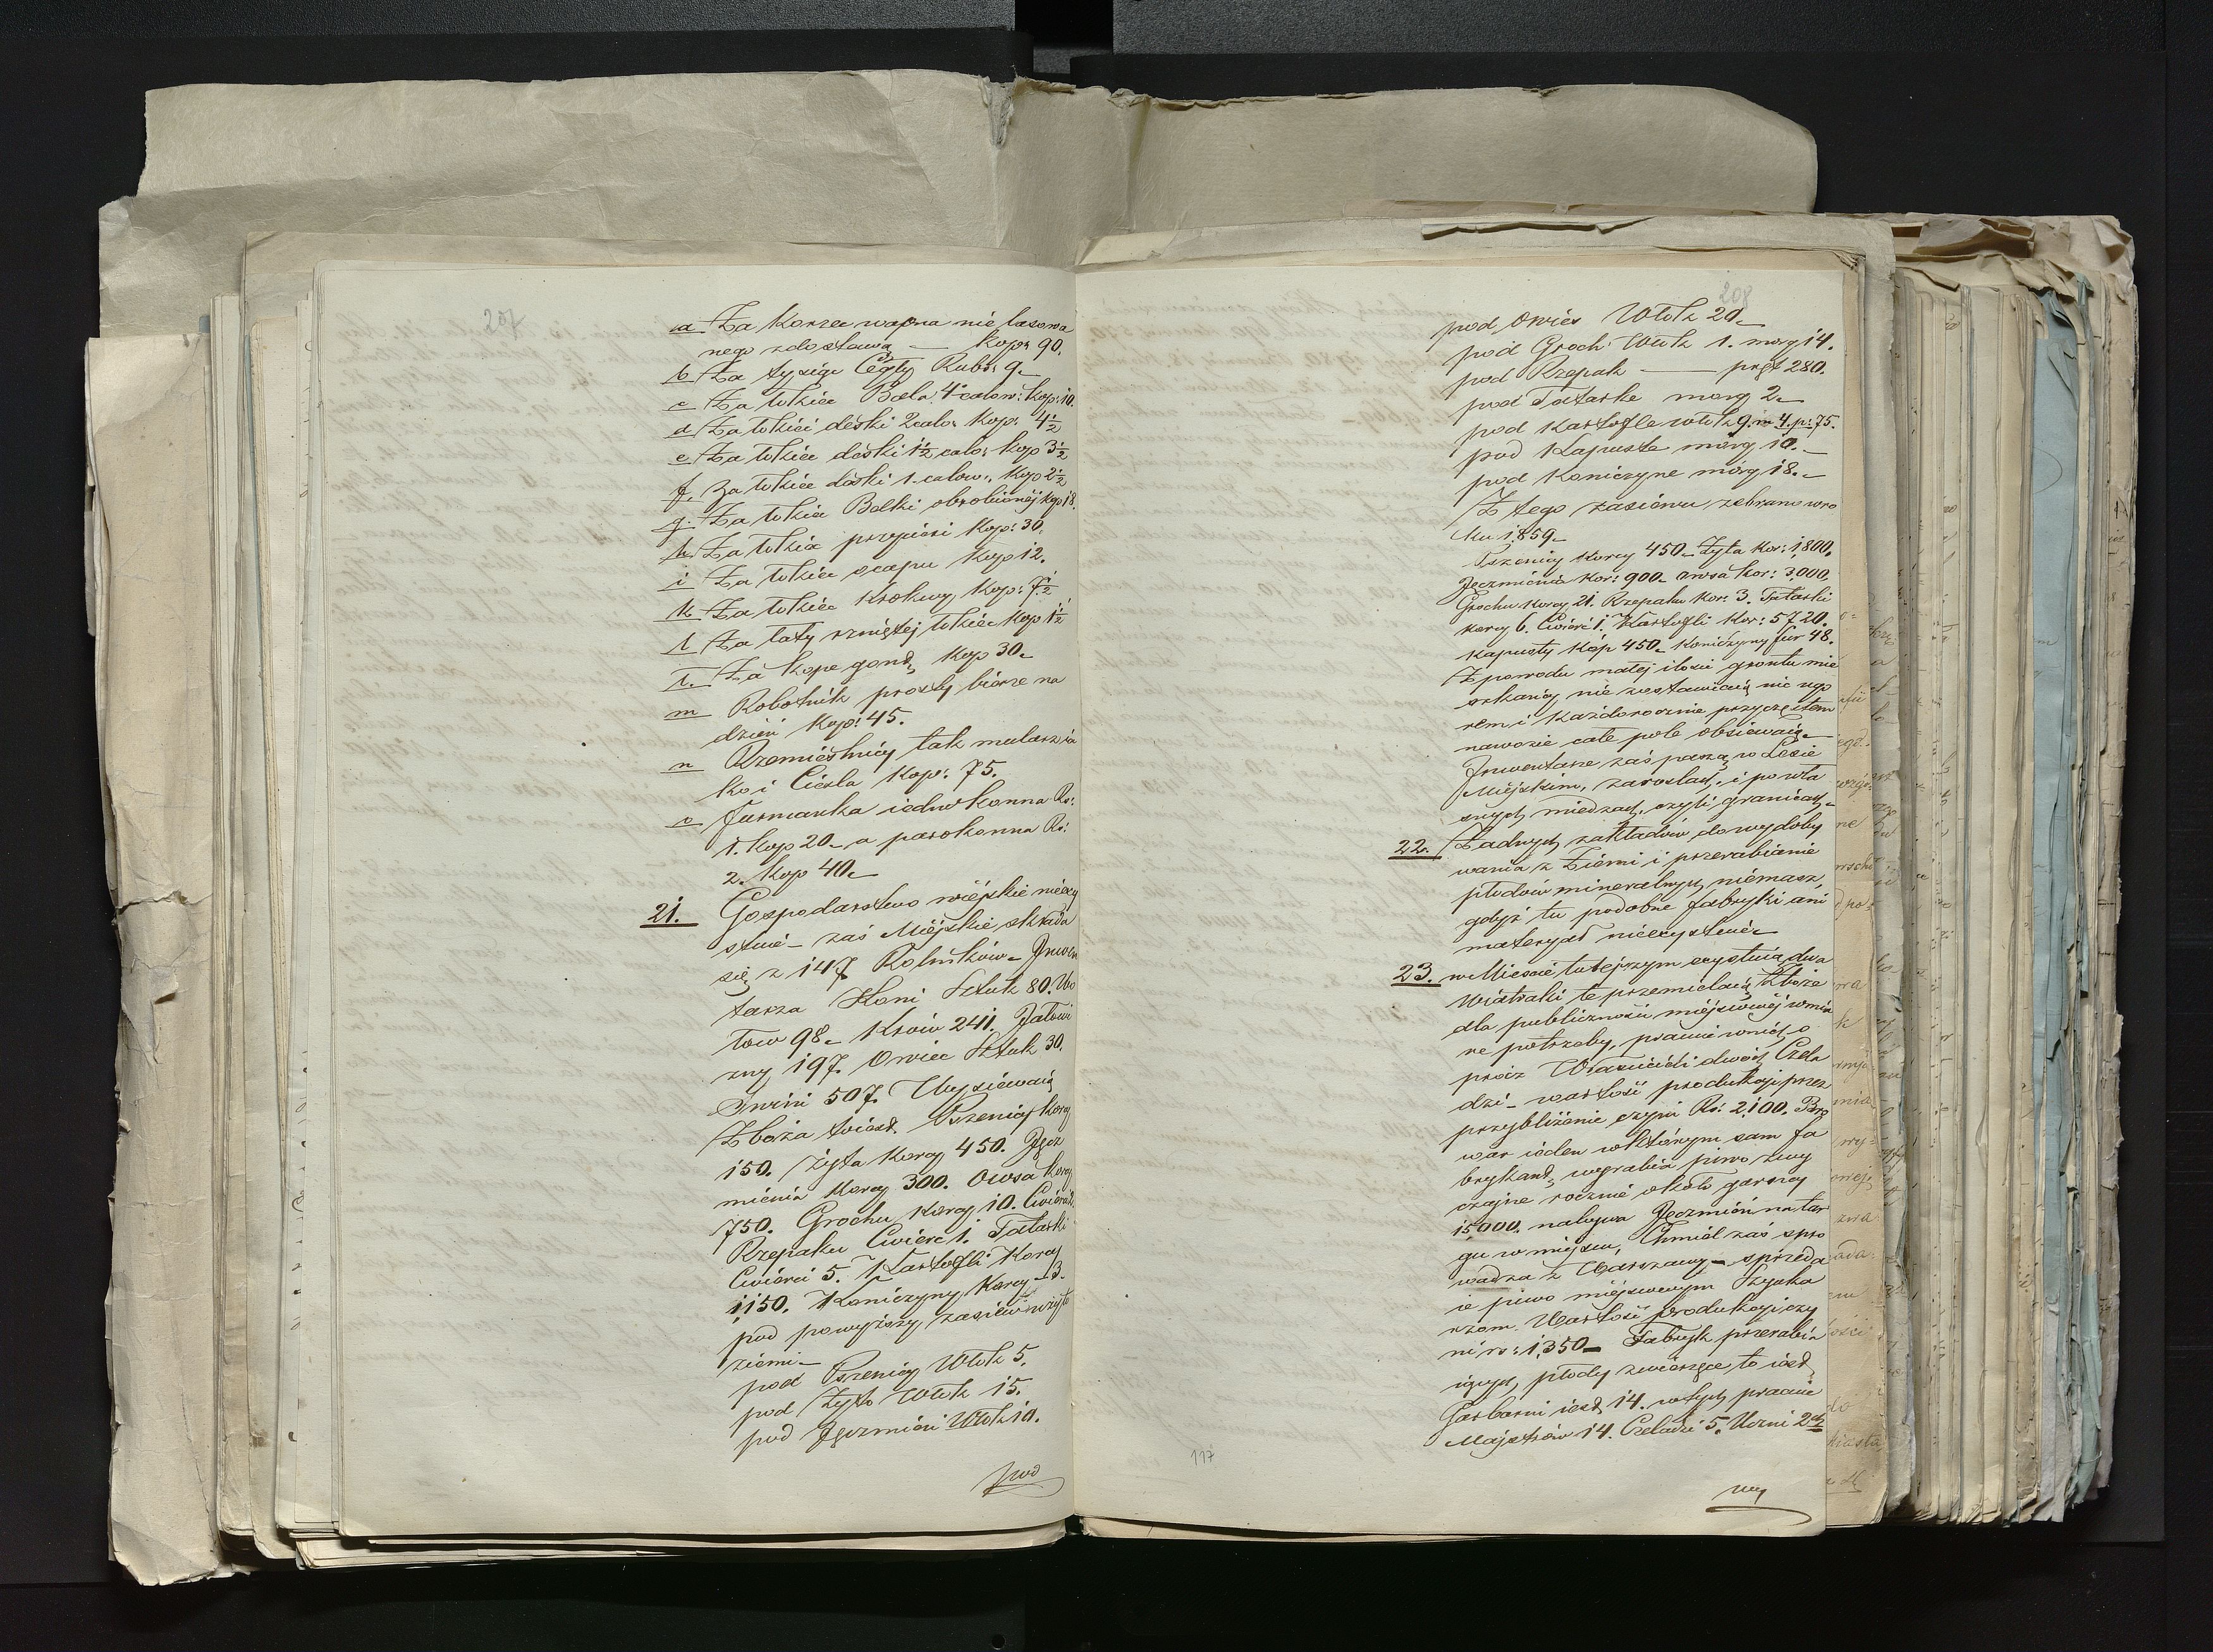 207
a Za Korzec wapna nie lasowa
nego z dostawą — Kop: 90.
b Za tysiąc Cegły Rubs: 9.
c Za łokieć Bala 4 calow: Kop: 10.
d Za łokieć deski 2 calo: Kop: 4½
e Za łokieć deski 1½ calo: Kop 3½
f. Za łokieć deski 1. calow: Kop 2½
g. Za łokieć Belki obrobionéj Kop 18.
h. Za łokieć przyciesi Kop: 30.
i Za łokieć ocapu Kop 12.
k Za łokieć Krokwy Kop: 7½
l Za łaty rzniętej łokieć Kop 1½
ł. Za Kopę gond, Kop 30.
m Robotnik prosty bierze na
dzień Kop: 45.
n Rzemieślnicy tak mularz ja
ko i Cieśla Kop: 75.
o Furmanka iednokonna Rs:
1. Kop 20. a parokonna Rs:
2. Kop 40.
21. Gospodarstwo wiejskie nieexy
stuie – zaś Miéjskie składa
się z 147 Rolników. Inwen
tarza Koni Sztuk 80. Wo
łow 98. Krów 241. Jałowi
zny 197. Owiec Sztuk 30.
Swini 507. Wysiewaią
Zboża toiest. Pszenicy Korcy
150. Żyta Korcy 450. Jęcz
mienia Korcy 300. Owsa Korcy
750. Grochu Korcy 10. Cwierci
Rzepaku Cwierć 1. Tatarki
Cwierci 5. Kartofli Korcy
1150. Koniczyny Korcy 3.
pod powyższy zasiew użyto
ziemi –
pod Pszenicy Włok 5.
pod Żyto Włok 15.
pod Jęczmień Włok 10.
pod
208
pod Owies Włok 20.
pod Groch Włók 1. morg 14.
pod Rzepak — pręt 280.
pod Tatarke morg 2.
pod Kartofle włok 9. m 4. p: 75.
pod Kapuste morg 10.
pod Koniczyne morg 18.
Z tego zasiewu zebrano w ro
ku 1859.
Pszenicy Korcy 450. Żyta Kor: 1,800.
Jęczmienia Kor: 900. Owsa Kor: 3,000.
Grochu Korcy 21. Rzepaku Kor: 3. Tatarki
Korcy 6. Cwierć 1. Kartofli Kor: 5720.
Kapusty Kóp 450. Koniczyny fur 48.
Z powodu małej ilości gruntu mie
szkańcy nie zostawiaią nic ugo
rem i Każdorocznie przyczęstem
nawozie całe pole obsiewaią.
Inwentarze zaś paszą w Lesie
Miejskim, zaroślach, i po wła
snych miedzach, czyli granicach.
22. Żadnych zakładów do wydoby
wania z Ziemi i przerabianie
płodow mineralnych niemasz,
gdyż tu podobne fabryki ani
materyał nieexystuie.
23. w Miescie tutejszym exystuią dwa
Wiatraki te przemielaią Zboże
dla publiczności miejscowéj w mia
re potrzeby, pracuie w nich o
prócz Właścicieli dwóch Czela
dzi – wartość produkcji przez
przybliżenie czyni Rs: 2,100. Bro
war ieden w którym sam fa
brykant, wyrabia piwo zwy
czajne rocznie około garncy
15,000. nabywa Jęczmień na tar
gu w miejscu, Chmiél zaś spro
wadza z Warszawy – sprzeda
ie piwo miejscowym Szynka
rzom. Wartość produkcji czy
ni rs: 1,350. Fabryk przerabia
iących płody zwierzęce, to iest,
Garbarni iest 14. w tych pracuie
Majstrów 14. Czeladzi 5. Uczni 2ch
117